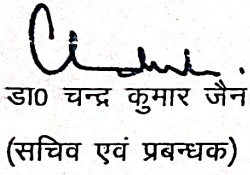 डा0 चन्द्र कुमार जैन
(सचिव एवं प्रबन्धक)